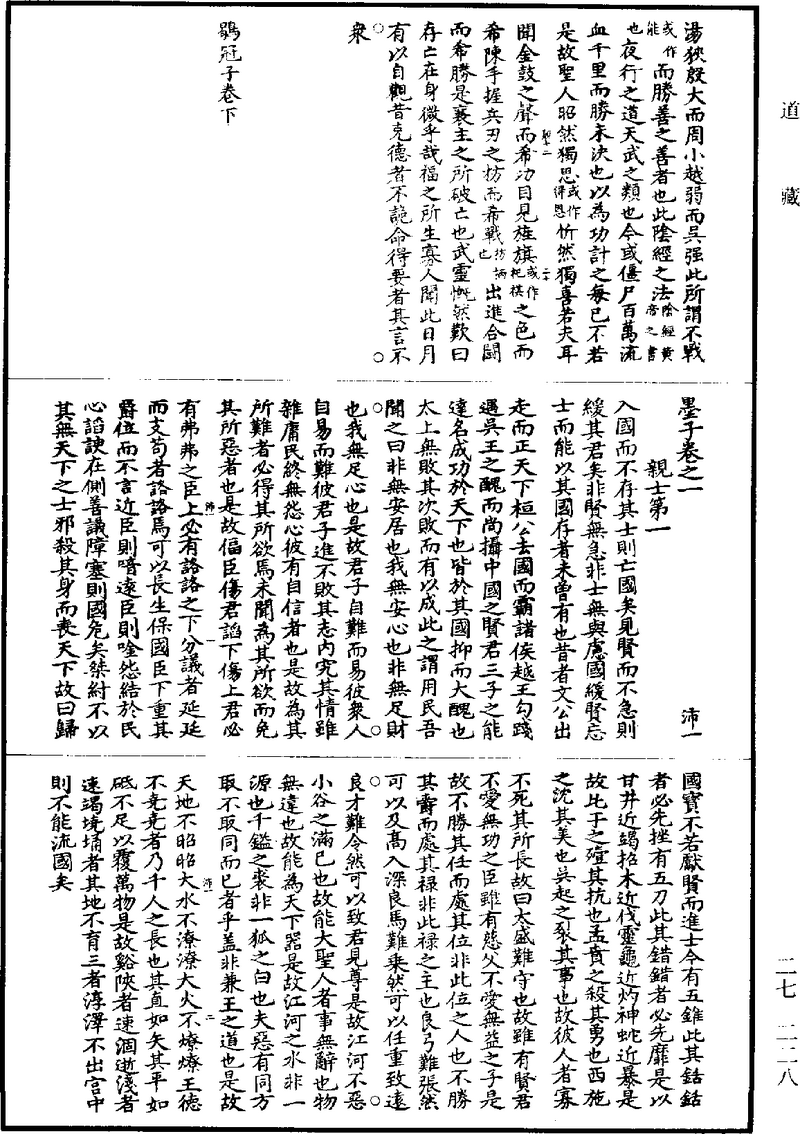 道藏
二七 二二八
湯狹殷大而周小越弱而吳强此所謂不戰
而勝善之善者也此陰經之法
或作能
陰經黃帝之書
也夜行之道天武之類也今或僵尸百萬流
血千里而勝未決也以為功計之每已不若
是故聖人昭然獨思忻然獨喜若夫耳
或作得恩
聞金鼓之聲而希功目見旌旗之色而
或作杞棋
希陳手握兵刃之枋而希戰出進合鬭
枋柄也
而希勝是襄主之所破亡也武靈慨然歎曰
存亡在身微乎哉福之所生寡人聞此日月
有以自觀昔克德者不詭命得要者其言不
衆
鶡冠子卷下
墨子卷之一
沛一
親士第一
入國而不存其士則亡國矣見賢而不急則
緩其君矣非賢無急非士無與慮國緩賢忘
士而能以其國存者未曾有也昔者文公出
走而正天下桓公去國而霸諸侯越王勾踐
遇吳王之醜而尚攝中國之賢君三子之能
達名成功於天下也皆於其國抑而大醜也
太上無敗其次敗而有以成此之謂用民吾
聞之曰非無安居也我無安心也非無足財
也我無足心也是故君子自難而易彼衆人
自易而難彼君子進不敗其志內究其情雖
雜庸民終無怨心彼有自信者也是故為其
所難者必得其所欲焉未聞為其所欲而免
其所惡者也是故偪臣傷君謟下傷上君必
有弗弗之臣上必有詻詻之下分議者延延
而支苟者詻詻焉可以長生保國臣下重其
爵位而不言近臣則喑遠臣則唫怨結於民
心謟諛在側善議障塞則國危矣桀紂不以
其無天下之士邪殺其身而喪天下故曰歸
國寶不若獻賢而進士今有五錐此其銛銛
者必先挫有五刀此其錯錯者必先靡是以
甘井近竭招木近伐靈龜近灼神蛇近暴是
故比干之殪其抗也孟賁之殺其勇也西施
之沈其美也吳起之裂其事也故彼人者寡
不死其所長故曰太盛難守也故雖有賢君
不愛無功之臣雖有慈父不愛無益之子是
故不勝其任而處其位非此位之人也不勝
其爵而處其祿非此祿之主也良弓難張然
可以及高入深良馬難乗然可以任重致遠
良才難令然可以致君見尊是故江河不惡
小谷之滿已也故能大聖人者事無辭也物
無違也故能為天下器是故江河之水非一
源也千鎰之裘非一狐之白也夫惡有同方
取不取同而已者乎蓋非兼王之道也是故
天地不昭昭大水不潦潦大火不燎燎王德
不尭尭者乃千人之長也其直如矢其平如
砥不足以覆萬物是故谿陜者速涸逝淺者
速竭墝埆者其地不育王者淳澤不出宮中
則不能流國矣